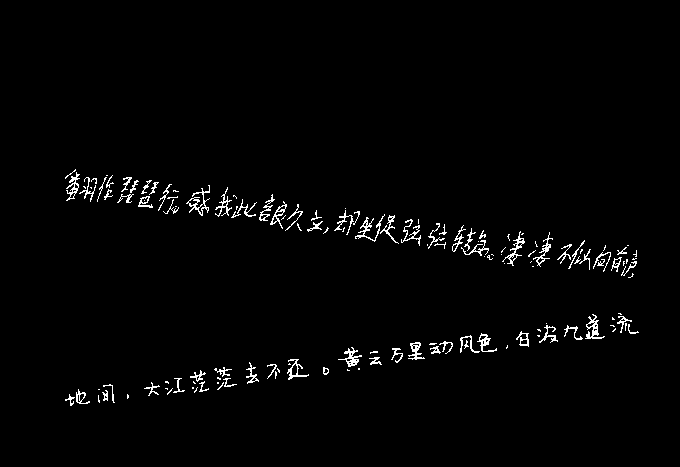 翻作琵琶行。感我此言良久立,却坐促弦弦转急。凄凄不似向前声
地间,大江茫茫去不还。黄云万里动风色,白波九道流